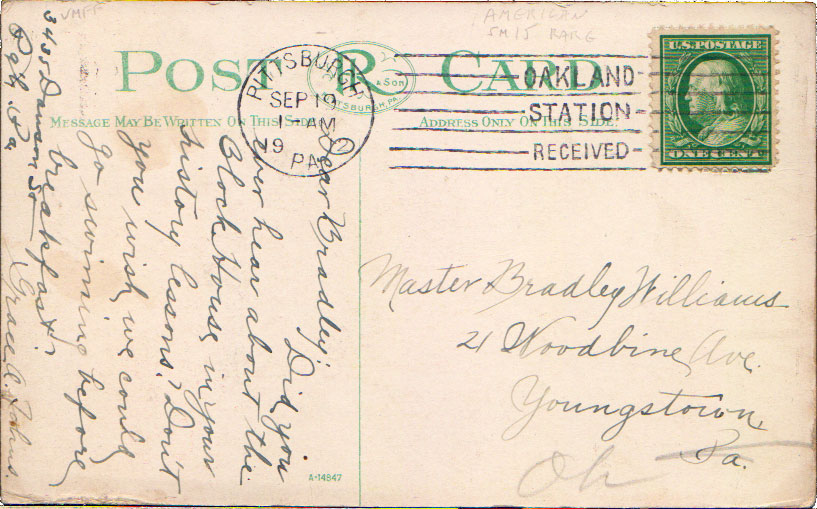 VMFF
AMERICAN
5M15 RARE
POST CARD
R
& SON
PITTSBURGH, PA.
MESSAGE MAY BE WRITTEN ON THIS SIDE
ADDRESS ONLY ON THIS SIDE
PITTSBURGH
SEP 19
1 - AM
19
PA.
2
OAKLAND
STATION
RECEIVED
U.S. POSTAGE
ONE CENT
Dear Bradley: Did you
ever hear about the
Block House, in your
history lessons? Don't
you wish we could
go swiming before
breakfast? Grace A. Johns.
3435 Dawson St
Pgh. Pa
Master Bradley Williams
21 Woodbine Ave.
Youngstown,
Pa.
Oh
A-14847